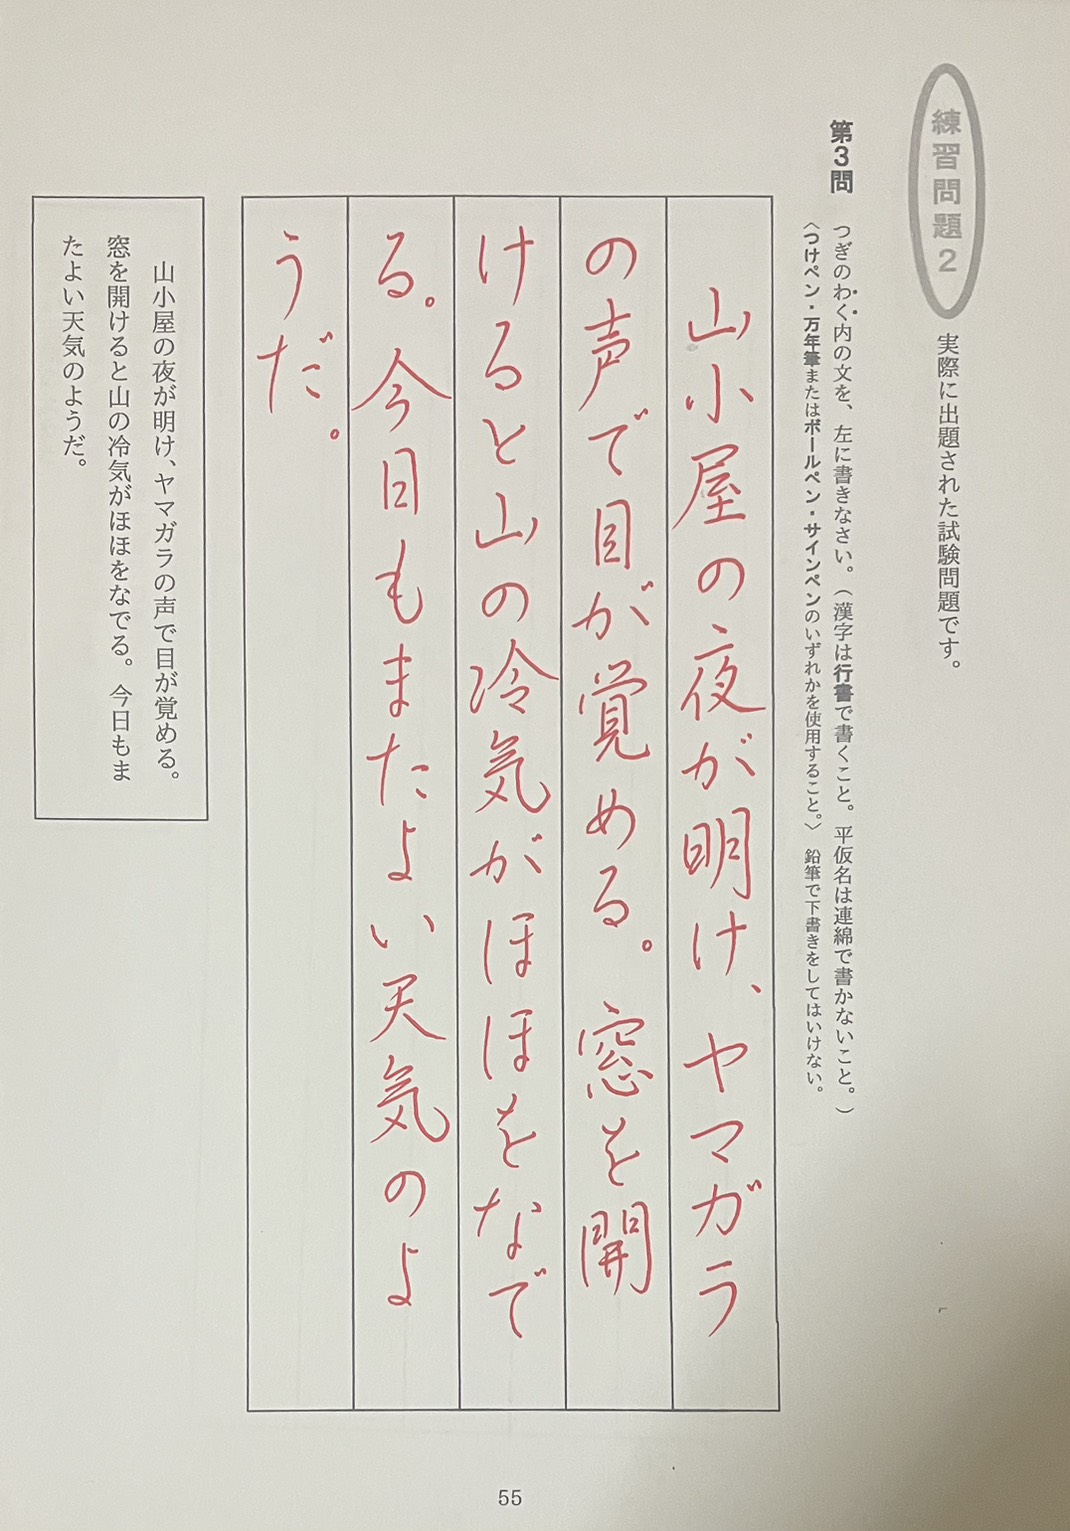 練習問題2
実際に出題された試験問題です。
第3問
つぎのわく内の文を、左に書きなさい。(漢字は行書で書くこと。平仮名は連綿で書かないこと。)
〈つけペン・万年筆またはボールペン・サインペンのいずれかを使用すること。〉鉛筆で下書きをしてはいけない。
山小屋の夜が明け、ヤマガラ
の声で目が覚める。窓を開
けると山の冷気がほほをなで
る。今日もまたよい天気のよ
うだ。
山小屋の夜が明け、ヤマガラの声で目が覚める。
窓を開けると山の冷気がほほをなでる。今日もま
たよい天気のようだ。
55